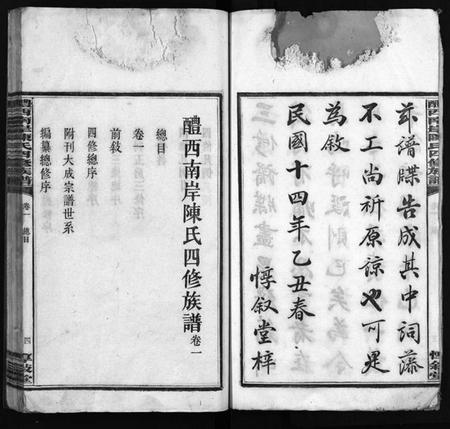 茲譜牒告成其中詞藻
不工尚祈原諒也可是
為敘
民國十四年乙丑春
惇叙堂梓
醴西南岸陳氏四修族譜 卷一
總目
卷一
前敍
四修總序
附刊大成宗譜世系
編纂總修序
醴西南岸陳氏四修族譜
卷一 總目
四
惇敍堂
醴西南岸陳氏四修族譜
惇敍堂